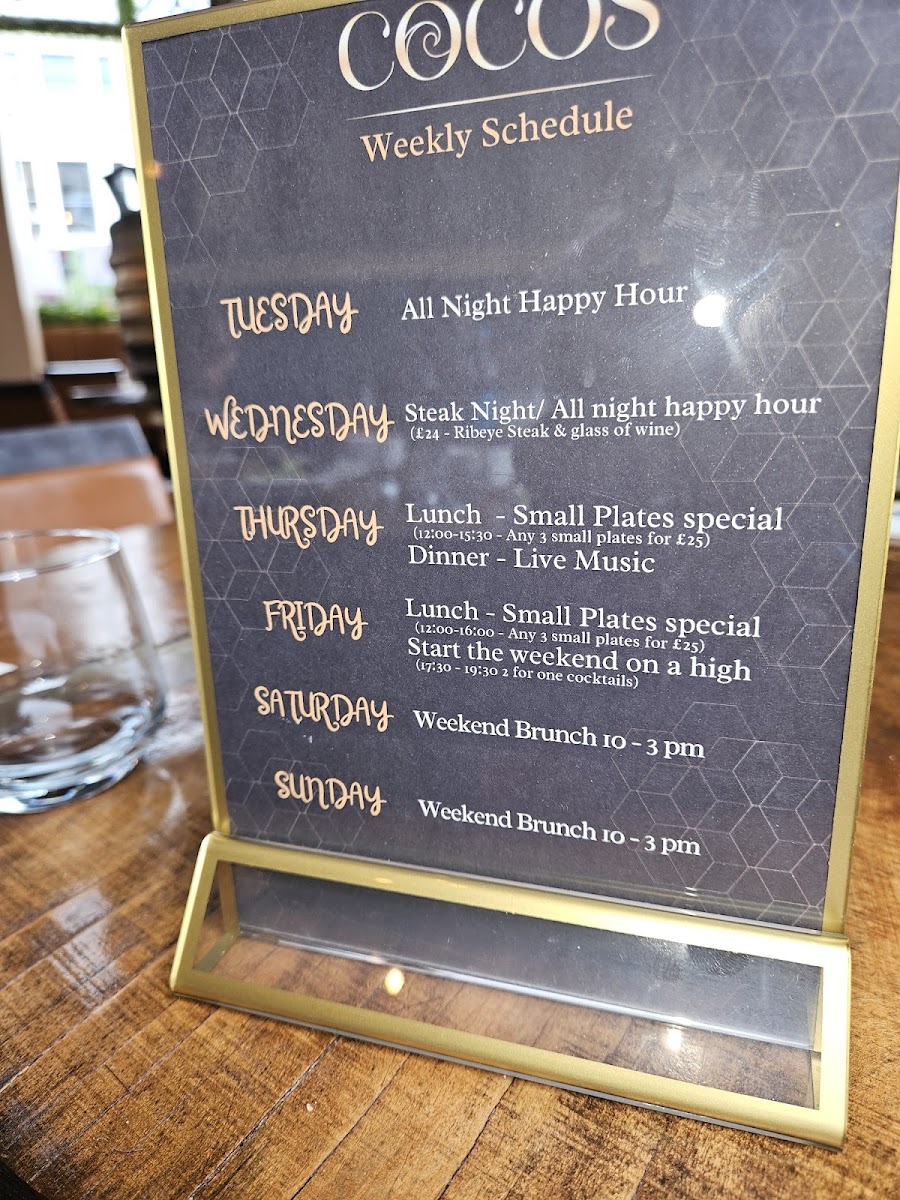 COCOS
Weekly Schedule
TUESDAY All Night Happy Hour
WEDNESDAY Steak Night/ All night happy hour
(£24 - Ribeye Steak & glass of wine)
THURSDAY Lunch - Small Plates special
(12:00-15:30 - Any 3 small plates for £25)
Dinner - Live Music
FRIDAY Lunch - Small Plates special
(12:00-16:00 - Any 3 small plates for £25)
Start the weekend on a high
(17:30 - 19:30 2 for one cocktails)
SATURDAY Weekend Brunch 10 - 3 pm
SUNDAY Weekend Brunch 10 - 3 pm